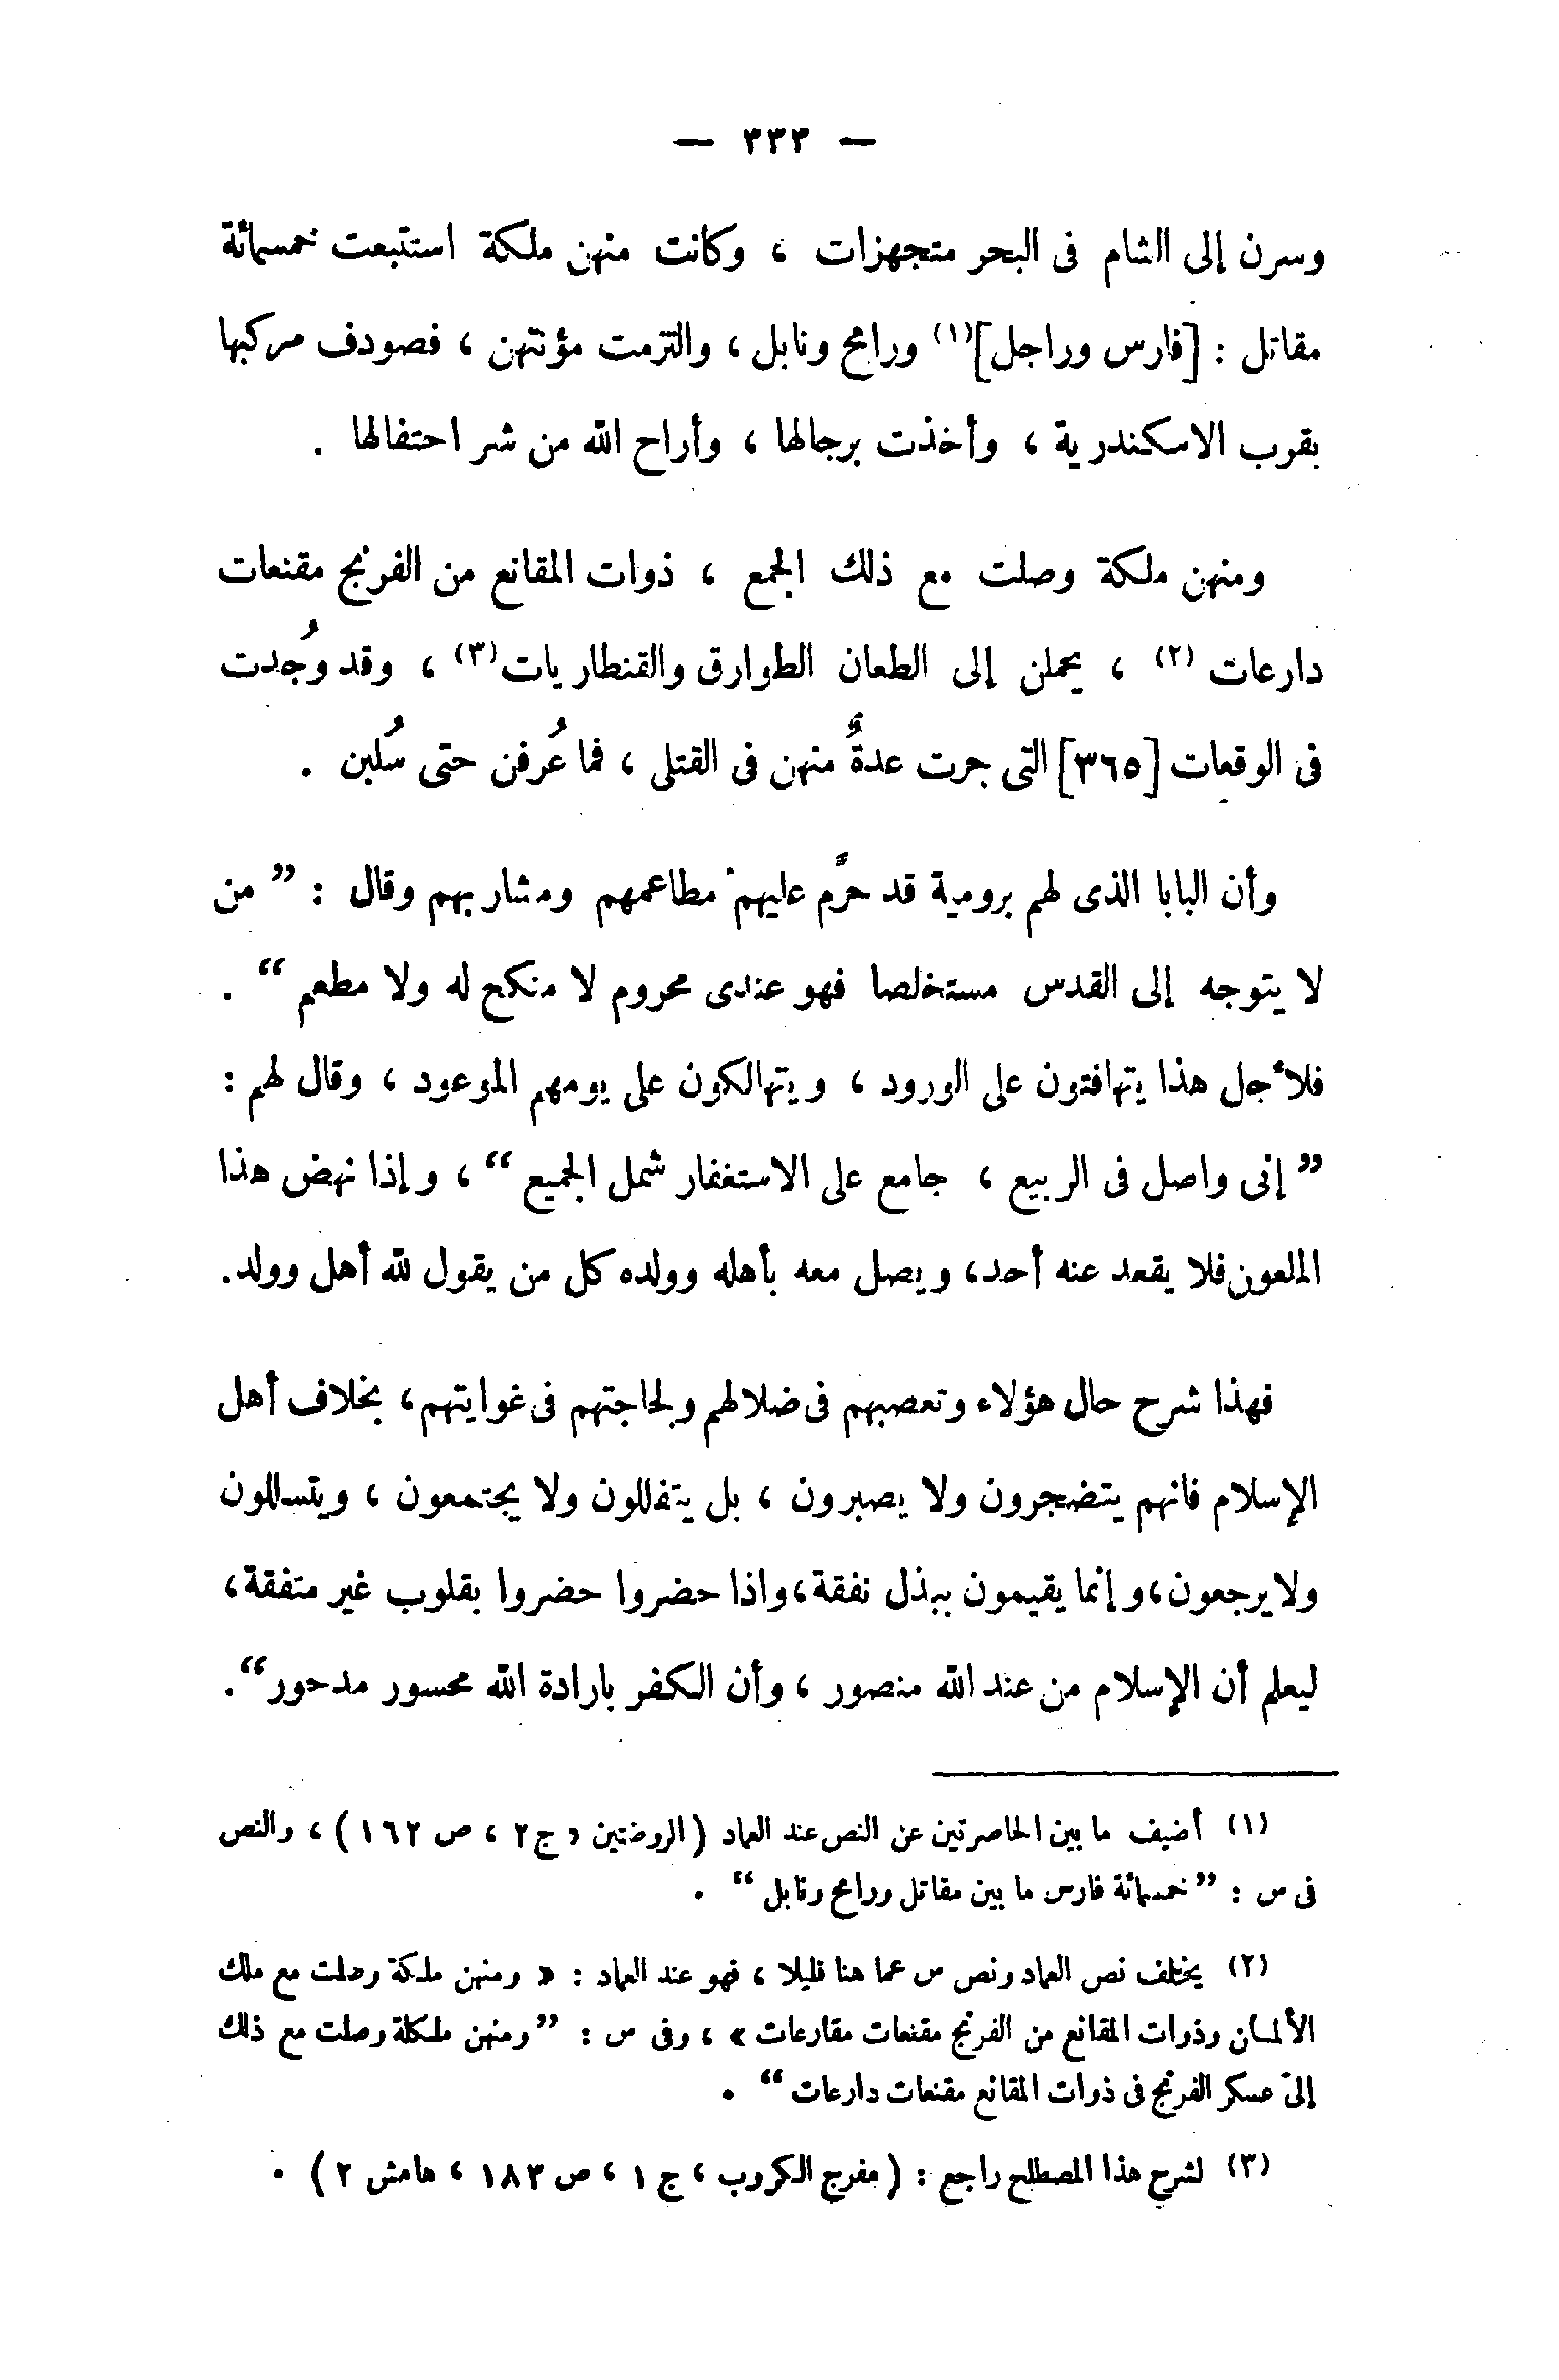 — ٣٣٣ —
وسرن إلى الشام فى البحر متجهزات ، وكانت منهن ملكة استتبعت خمسمائة
مقاتل : [فارس وراجل](١) ورامح ونابل ، والتزمت مؤنتهن ، فصودف مركبها
بقرب الاسكندرية ، وأخذت برجالها ، وأراح الله من شر احتفالها .
ومنهن ملكة وصلت مع ذلك الجمع ، ذوات المقانع من الفرنج مقنعات
دارعات (٢) ، يحملن إلى الطعان الطوارق والقنطاريات(٣) ، وقد وُجدت
فى الوقعات [٣٦٥] التى جرت عدةٌ منهن فى القتلى ، فما عُرفن حتى سُلبن .
وأن البابا الذى لهم برومية قد حرَّم عليهم مطاعمهم ومشاربهم وقال : ” من
لا يتوجه إلى القدس مستخلصا فهو عندى محروم لا منكح له ولا مطعم “ .
فلأجل هذا يتهافتون على الورود ، ويتهالكون على يومهم الموعود ، وقال لهم :
” إنى واصل فى الربيع ، جامع على الاستغفار شمل الجميع “ ، وإذا نهض هذا
الملعون فلا يقعد عنه أحد، ويصل معه بأهله وولده كل من يقول لله أهل وولد.
فهذا شرح حال هؤلاء وتعصبهم فى ضلالهم ولجاجتهم فى غوايتهم، بخلاف أهل
الإسلام فانهم يتضجرون ولا يصبرون ، بل يتفللون ولا يجتمعون ، ويتسللون
ولا يرجعون، وإنما يقيمون ببذل نفقة، واذا حضروا حضروا بقلوب غير متفقة،
ليعلم أن الإسلام من عند الله منصور ، وأن الكفر بارادة الله محسور مدحور“.
(١) أضيف ما بين الحاصرتين عن النص عند العماد (الروضتين ، ج ٢ ، ص ١٦٢ ) ، والنص
فى س : ” خمسمائة فارس ما بين مقاتل ورامح ونابل “ .
(٢) يختلف نص العماد ونص س عما هنا قليلا ، فهو عند العماد : « ومنهن ملكة وصلت مع ملك
الألمان وذوات المقانع من الفرنج مقنعات مقارعات » ، وفى س : ” ومنهن ملكلة وصلت مع ذلك
إلى عسكر الفرنج فى ذوات المقانع مقنعات دارعات “ .
(٣) لشرح هذا المصطلح راجع : ( مفرج الكروب ، ج ١ ، ص ١٨٣ ، هامش ٢ ) .